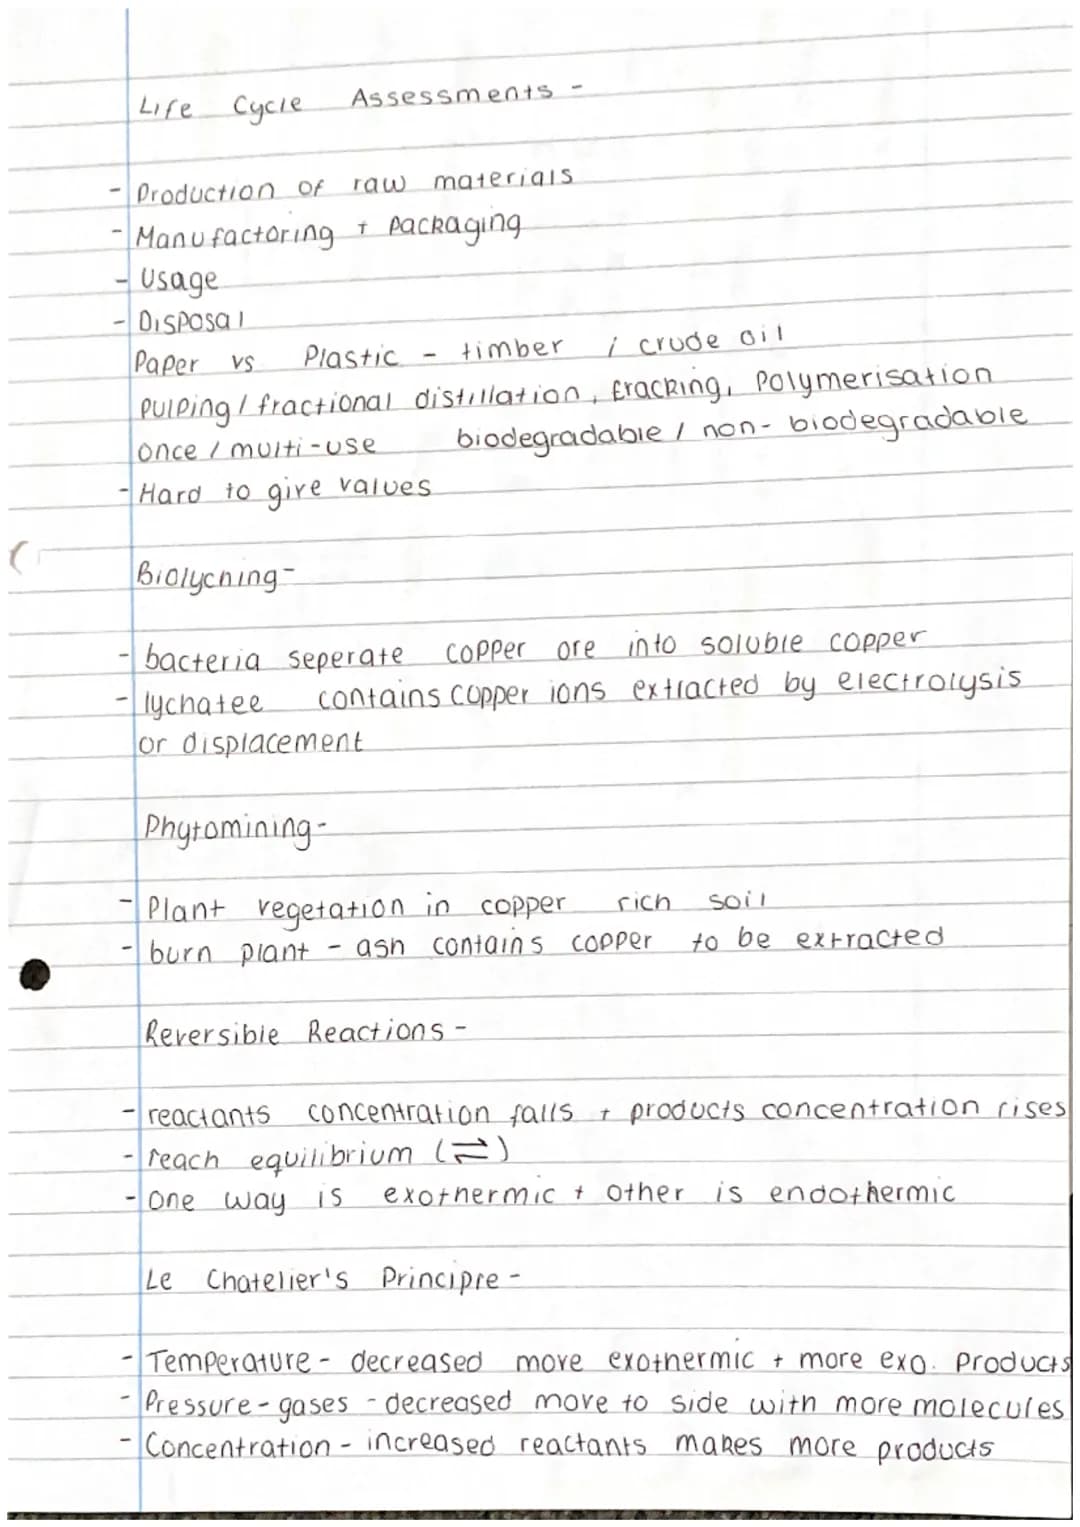 Life Cycle Assessments -
- Production of raw materials
- Manufactoring + Packaging
- Usage
- Disposal
Paper vs Plastic - timber / crude oil
pulping / fractional distillation, cracking, Polymerisation
once / multi-use biodegradable / non-biodegradable
- Hard to give values
Biolyching -
- bacteria seperate copper ore into soluble copper
- lychatee contains copper ions extracted by electrolysis
or displacement
Phytomining -
- Plant vegetation in copper rich soil
- burn plant - ash contains copper to be extracted
Reversible Reactions -
- reactants concentration falls + products concentration rises
- reach equilibrium (⇌)
- one way is exothermic + other is endothermic
Le Chatelier's Principre -
- Temperature - decreased move exothermic + more exo. Products
- Pressure - gases - decreased move to side with more molecules
- Concentration - increased reactants makes more products